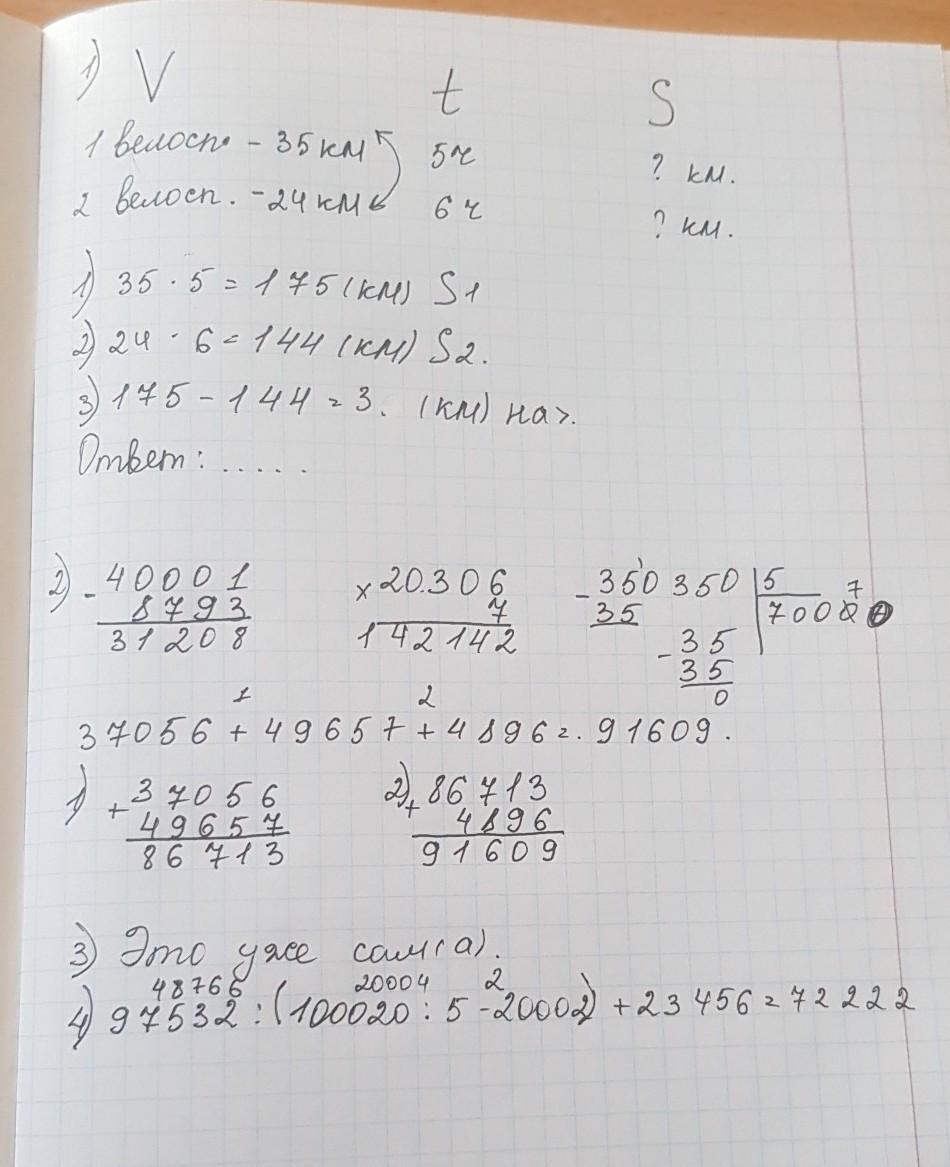 1) V t S
1 велосп. - 35 км 5ч ? км.
2 велосп. - 24 км 6 ч ? км.
1) 35 · 5 = 175 (км) S1
2) 24 · 6 = 144 (км) S2.
3) 175 - 144 = 3. (км) на >.
Ответ: .....
2) - 40001 × 20.306 - 350350 | 5
8793 7 35 70007
31208 142142 - 35
35
0
1 2
37056 + 49657 + 4896 = . 91609.
1) + 37056 2) + 86713
49657 4896
86713 91609
3) Это уже сам(а).
48766 20004 2
4) 97532 : (100020 : 5 - 20002) + 23456 = 72222